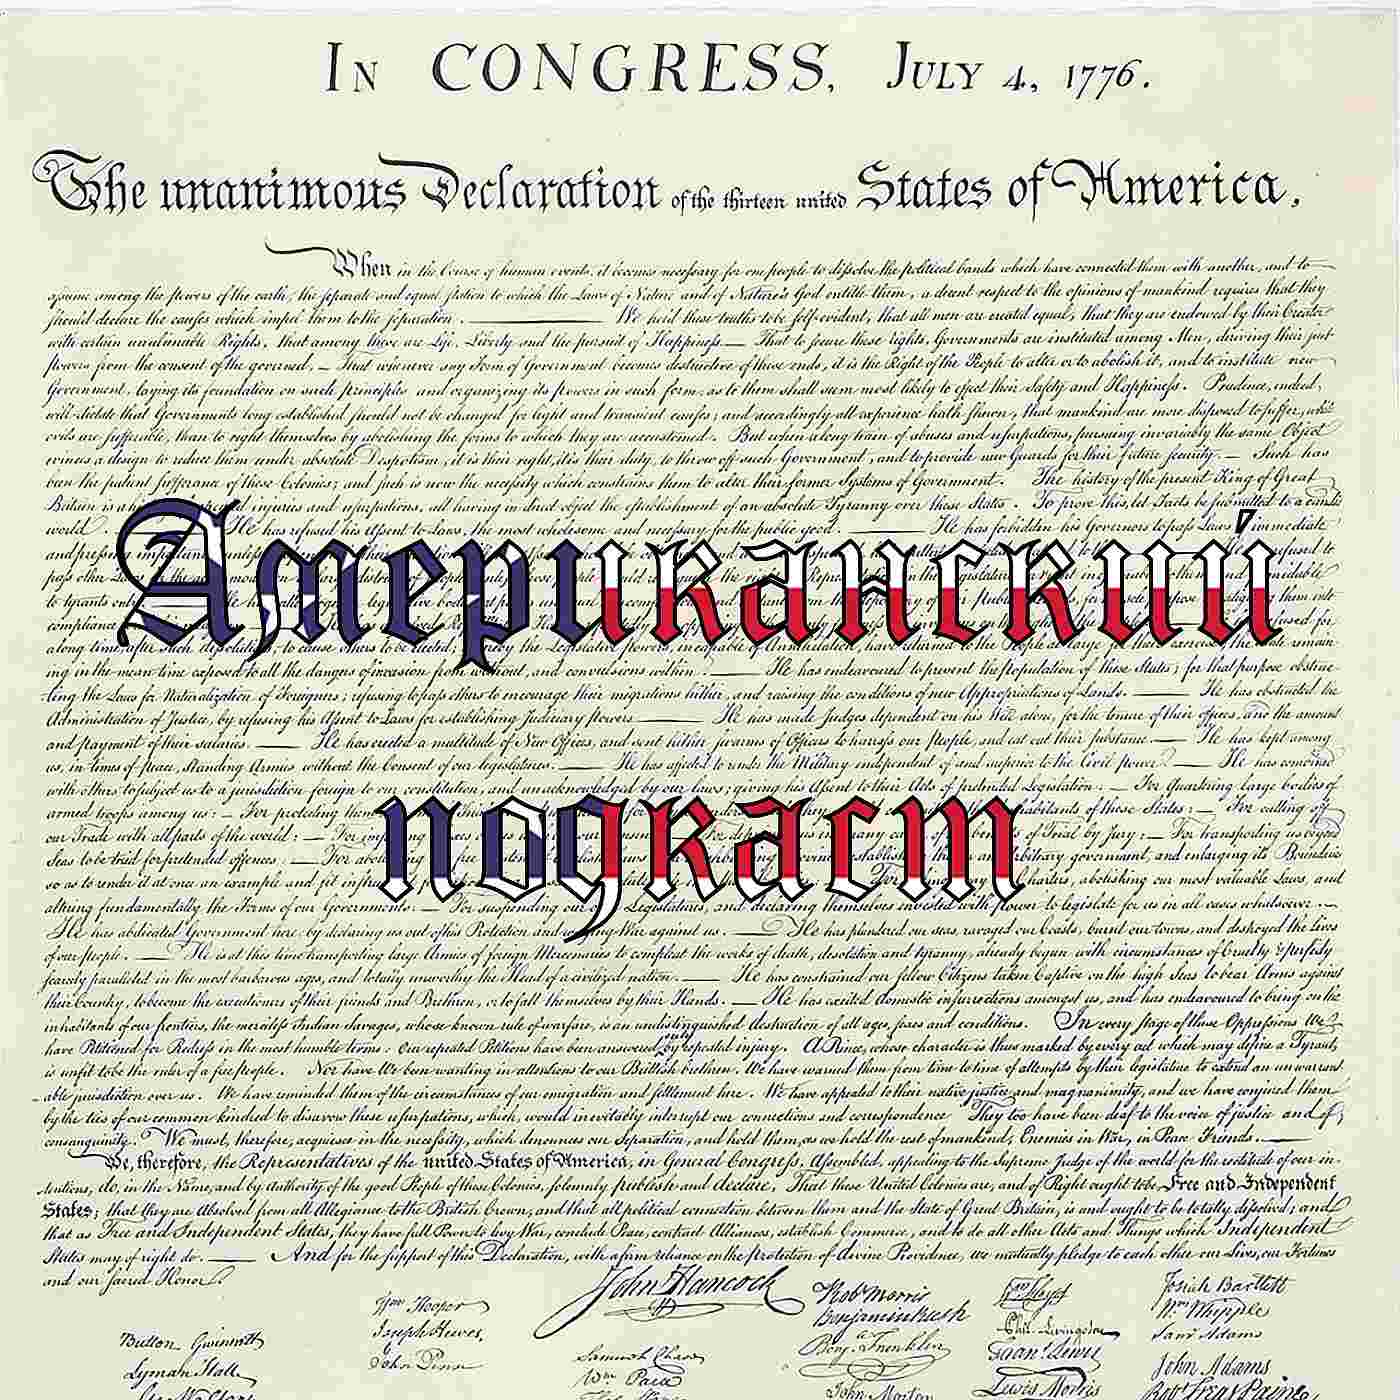 IN CONGRESS, JULY 4, 1776.
The unanimous Declaration of the thirteen united States of America,
When in the Course of human events, it becomes necessary for one people to dissolve the political bands which have connected them with another, and to
assume among the powers of the earth, the separate and equal station to which the Laws of Nature and of Nature's God entitle them, a decent respect to the opinions of mankind requires that they
should declare the causes which impel them to the separation. We hold these truths to be self-evident, that all men are created equal, that they are endowed by their Creator
with certain unalienable Rights, that among these are Life, Liberty and the pursuit of Happiness.— That to secure these rights, Governments are instituted among Men, deriving their just
powers from the consent of the governed, — That whenever any Form of Government becomes destructive of these ends, it is the Right of the People to alter or to abolish it, and to institute new
Government, laying its foundation on such principles and organizing its powers in such form, as to them shall seem most likely to effect their Safety and Happiness. Prudence, indeed,
will dictate that Governments long established should not be changed for light and transient causes; and accordingly all experience hath shewn, that mankind are more disposed to suffer, while
evils are sufferable, than to right themselves by abolishing the forms to which they are accustomed. But when a long train of abuses and usurpations, pursuing invariably the same Object
evinces a design to reduce them under absolute Despotism, it is their right, it is their duty, to throw off such Government, and to provide new Guards for their future security. — Such has
been the patient sufferance of these Colonies; and such is now the necessity which constrains them to alter their former Systems of Government. The history of the present King of Great
Britain is a injuries and usurpations, all having in direct object the establishment of an absolute Tyranny over these States. To prove this, let Facts be submitted to a candid
world He has refused his Assent to Laws, the most wholesome and necessary for the public good. He has forbidden his Governors to pass Laws immediate
and pressing
Американский
along time, after such dissolutions, to cause others to be elected; whereby the Legislative powers, incapable of Annihilation, have returned to the People at large for their exercise; the State remain
ing in the mean time exposed to all the dangers of invasion from without, and convulsions within. He has endeavoured to prevent the population of these States; for that purpose obstruc
ting the Laws for Naturalization of Foreigners; refusing to pass others to encourage their migrations hither, and raising the conditions of new Appropriations of Lands. He has obstructed the
Administration of Justice, by refusing his Assent to Laws for establishing Judiciary powers He has made Judges dependent on his Will alone, for the tenure of their offices, and the amount
and payment of their salaries. He has erected a multitude of New Offices, and sent hither swarms of Officers to harrass our People, and eat out their substance. He has kept among
us, in times of peace, Standing Armies without the Consent of our legislatures. He has affected to render the Military independent of and superior to the Civil power. He has combined
with others to subject us to a jurisdiction foreign to our constitution, and unacknowledged by our laws; giving his Assent to their Acts of pretended Legislation: — For Quartering large bodies of
armed troops among us: — For protecting them
подкаст
altering fundamentally the Forms of our Governments: — For suspending our own Legislatures, and declaring themselves invested with power to legislate for us in all cases whatsoever.—
He has abdicated Government here, by declaring us out of his Protection and waging War against us. He has plundered our seas, ravaged our Coasts, burnt our towns, and destroyed the lives
of our people. He is at this time transporting large Armies of foreign Mercenaries to compleat the works of death, desolation and tyranny, already begun with circumstances of Cruelty & perfidy
scarcely paralleled in the most barbarous ages, and totally unworthy the Head of a civilized nation. He has constrained our fellow Citizens taken Captive on the high Seas to bear Arms against
their Country, to become the executioners of their friends and Brethren, or to fall themselves by their Hands. He has excited domestic insurrections amongst us, and has endeavoured to bring on the
inhabitants of our frontiers, the merciless Indian Savages, whose known rule of warfare, is an undistinguished destruction of all ages, sexes and conditions. In every stage of these Oppressions We
have Petitioned for Redress in the most humble terms: Our repeated Petitions have been answered only by repeated injury. A Prince, whose character is thus marked by every act which may define a Tyrant,
is unfit to be the ruler of a free people. Nor have We been wanting in attentions to our Brittish brethren. We have warned them from time to time of attempts by their legislature to extend an unwarrant
able jurisdiction over us. We have reminded them of the circumstances of our emigration and settlement here. We have appealed to their native justice and magnanimity, and we have conjured them
by the ties of our common kindred to disavow these usurpations, which, would inevitably interrupt our connections and correspondence They too have been deaf to the voice of justice and of
consanguinity. We must, therefore, acquiesce in the necessity, which denounces our Separation, and hold them, as we hold the rest of mankind, Enemies in War, in Peace Friends.
We, therefore, the Representatives of the united States of America, in General Congress, Assembled, appealing to the Supreme Judge of the world for the rectitude of our in-
tentions, do, in the Name, and by Authority of the good People of these Colonies, solemnly publish and declare, That these United Colonies are, and of Right ought to be Free and Independent
States; that they are Absolved from all Allegiance to the British Crown, and that all political connection between them and the State of Great Britain, is and ought to be totally dissolved; and
that as Free and Independent States, they have full Power to levy War, conclude Peace, contract Alliances, establish Commerce, and to do all other Acts and Things which Independent
States may of right do. And for the support of this Declaration, with a firm reliance on the protection of divine Providence, we mutually pledge to each other our Lives, our Fortunes
and our sacred Honor.
John Hancock
Button Gwinnett
Lyman Hall
Wm Hooper
Joseph Hewes,
John Penn
Samuel Chase
Wm Paca
Robt Morris
Benjamin Rush
Benj. Franklin
John Morton
Phil. Livingston
Lewis Morris
Josiah Bartlett
Wm Whipple
Saml Adams
John Adams
Robt Treat Paine